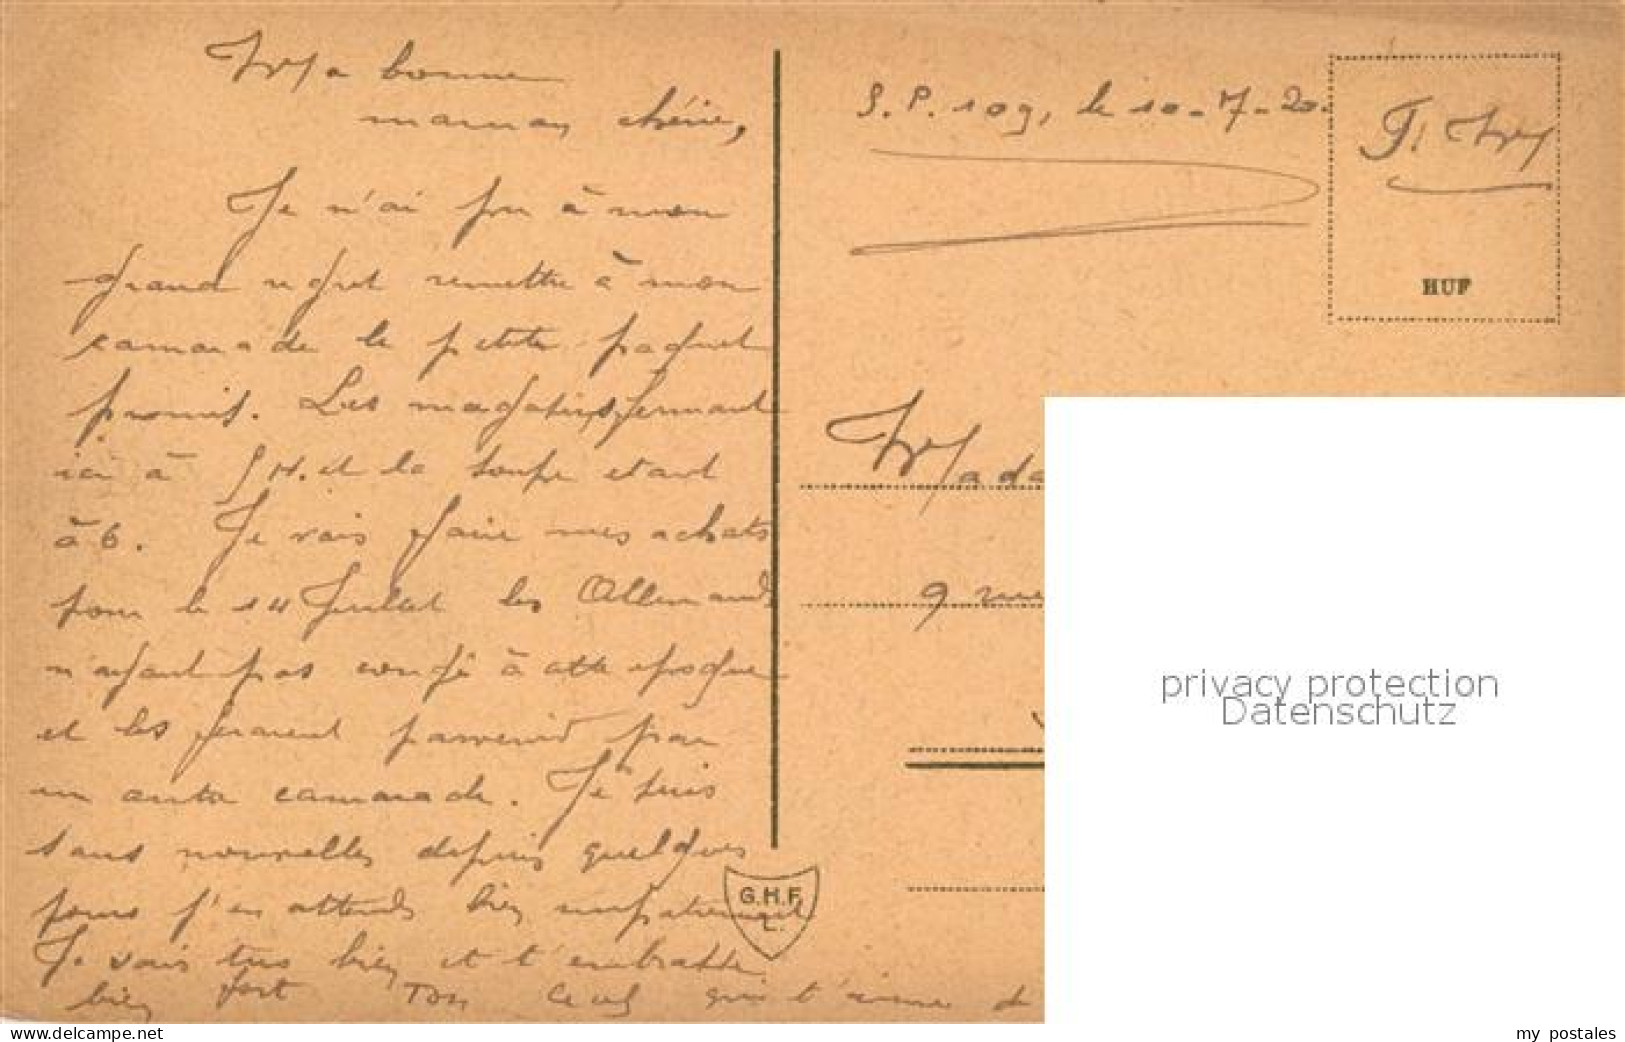 Ma bonne
maman chérie,
Je n'ai pu à mon
grand regret remettre à mon
camarade le petite paquet
promis. Les magasins fermant
ici à 5 H. et la soupe etant
à 6. Je vais faire mes achats
pour le 14 Juillet les Allemands
n'ayant pas congé à cette epoque
et les ferait parvenir par
un autre camarade. Je suis
sans nouvelles depuis quelques
jours j'en attends bien impatiemment
Je vais tres bien et t'embrasse
bien fort Ton qui t'aime de
S. P. 109, le 10-7-20.
F. M
HUF
Mada
9 rue
G.H.F.
L.
privacy protection
Datenschutz
oldthing.de
my postales